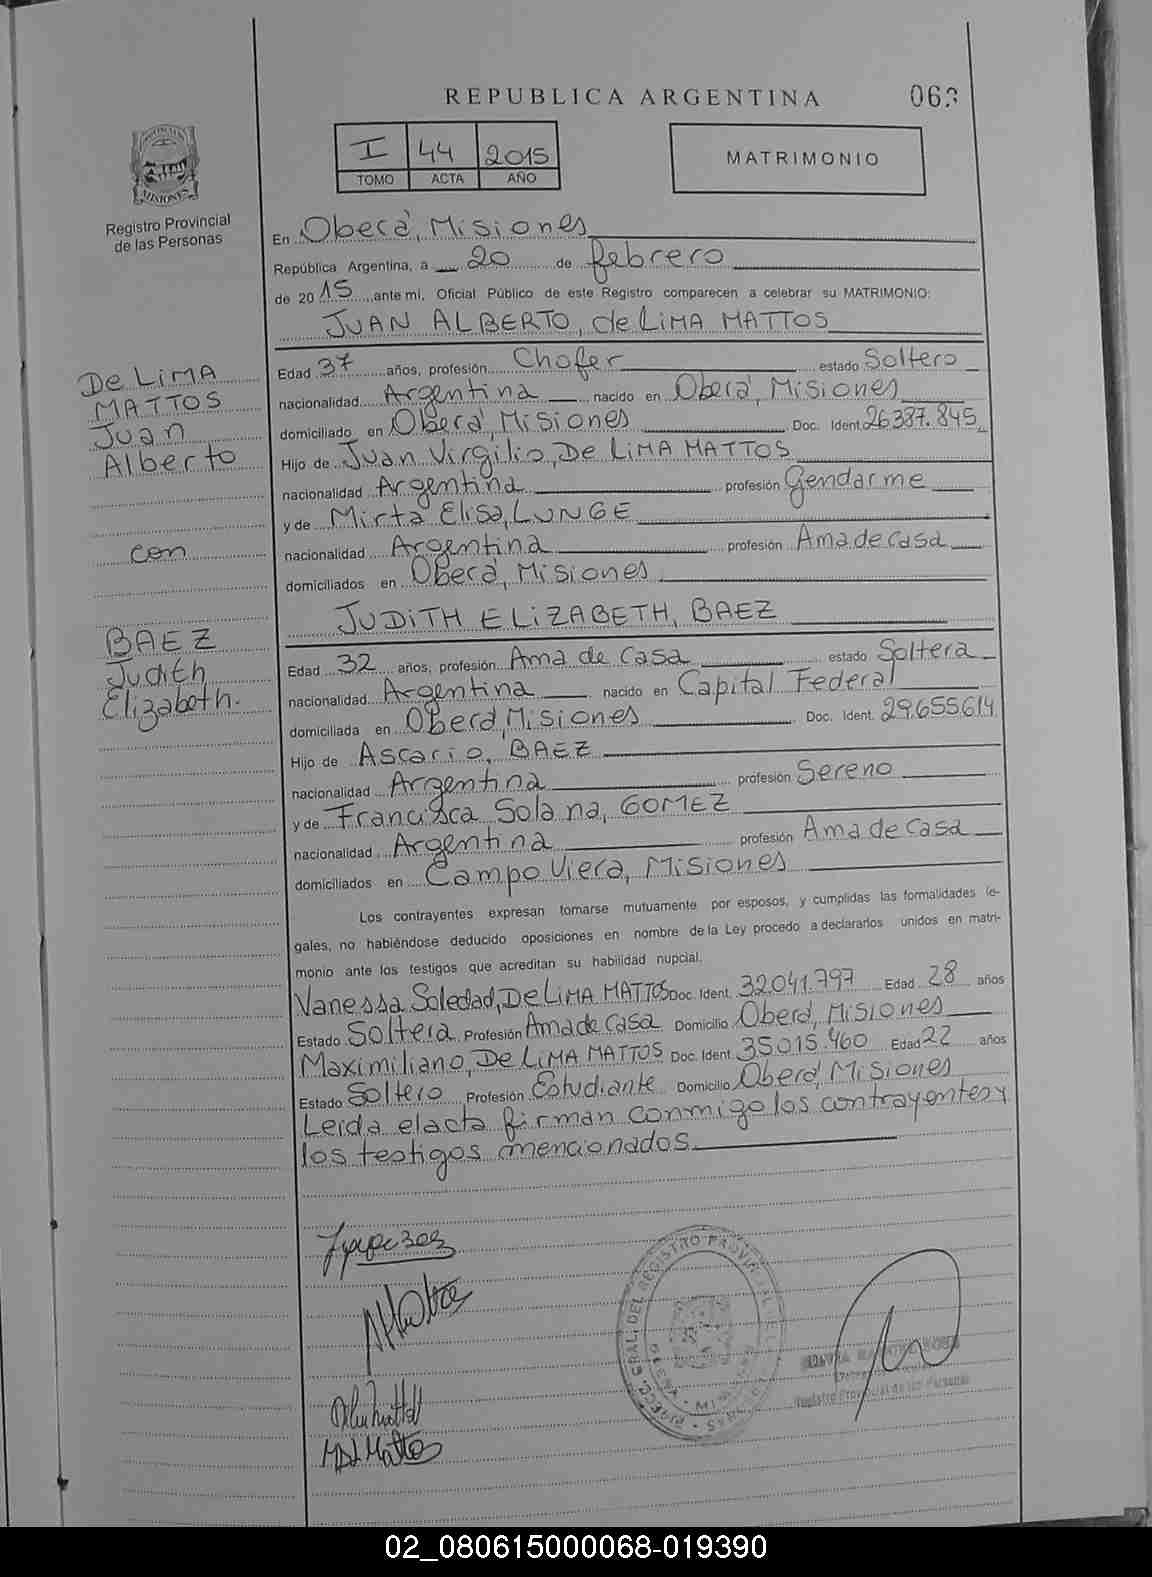 REPUBLICA ARGENTINA
I 44 2015
TOMO ACTA AÑO
MATRIMONIO
MISIONES
Registro Provincial
de las Personas
En Oberá, Misiones
República Argentina, a 20 de febrero
de 2015 ante mí, Oficial Público de este Registro comparecen a celebrar su MATRIMONIO:
JUAN ALBERTO, de LiMA MATTOS
De LiMA
MATTOS
Juan
Alberto
con
BAEZ
Judith
Elizabeth.
Edad 37 años, profesión Chofer estado Soltero
nacionalidad Argentina nacido en Oberá, Misiones
domiciliado en Oberá, Misiones Doc. Ident. 26387.845
Hijo de Juan Virgilio, De LiMA MATTOS
nacionalidad Argentina profesión Gendarme
y de Mirta Elisa, LUNGE
nacionalidad Argentina profesión Ama de casa
domiciliados en Oberá, Misiones
JUDiTH ELiZABETH, BAEZ
Edad 32 años, profesión Ama de Casa estado Soltera
nacionalidad Argentina nacido en Capital Federal
domiciliada en Oberá, Misiones Doc. Ident. 29.655614
Hijo de Ascario, BAEZ
nacionalidad Argentina profesión Sereno
y de Francisca Solana, GOMEZ
nacionalidad Argentina profesión Ama de Casa
domiciliados en Campo Viera, Misiones
Los contrayentes expresan tomarse mutuamente por esposos, y cumplidas las formalidades le-
gales, no habiéndose deducido oposiciones en nombre de la Ley procedo a declararlos unidos en matri-
monio ante los testigos que acreditan su habilidad nupcial.
Vanessa Soledad, De LiMA MATTOS Doc. Ident. 32.041.797 Edad 28 años
Estado Soltera Profesión Ama de Casa Domicilio Oberá, Misiones
Maximiliano, De LiMA MATTOS Doc. Ident. 35015.460 Edad 22 años
Estado Soltero Profesión Estudiante Domicilio Oberá, Misiones
Leida el acta firman conmigo los contrayentes y
los testigos mencionados.
Registro Provincial de las Personas
02_080615000068-019390